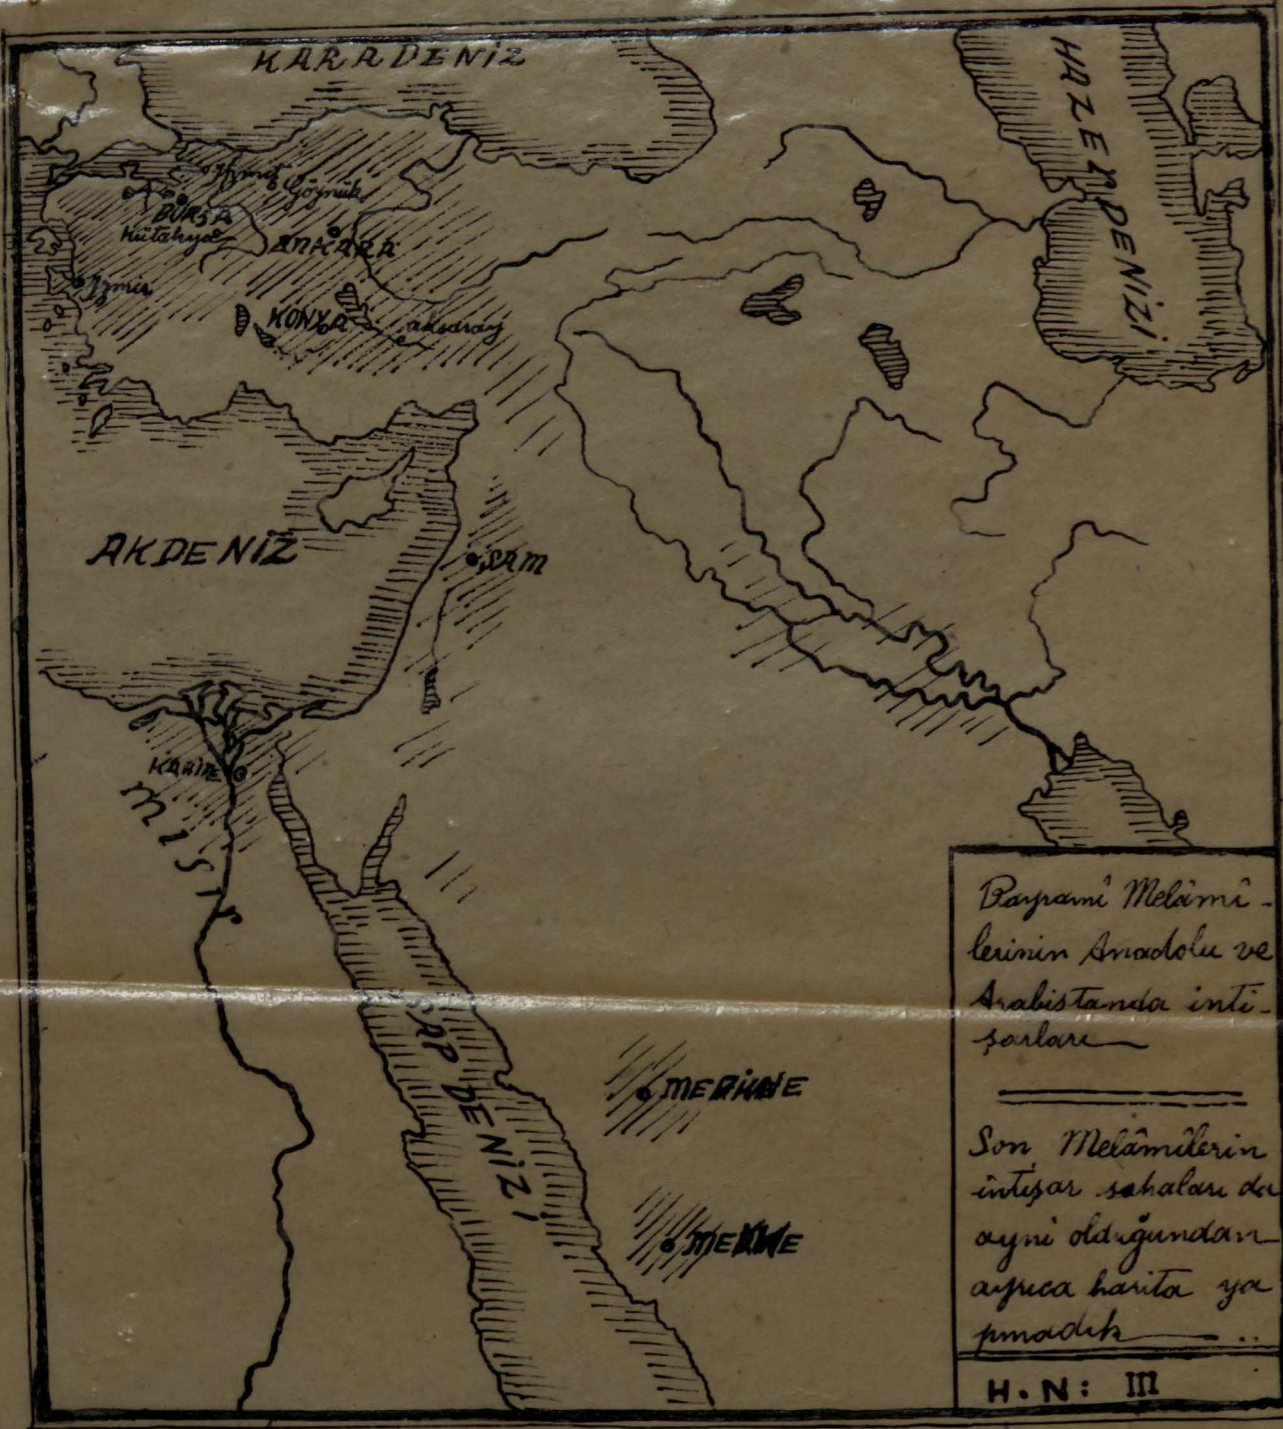 KARADENİZ
HAZER DENİZİ
İzmit
Göynük
BURSA
Kütahya
ANKARA
İzmir
KONYA
aksaray
AKDENİZ
ŞAM
KAHİRE
MISIR
ŞAP DENİZİ
MEDİNE
MEKKE
Bayramî Melâmî-
lerinin Anadolu ve
Arabistanda inti-
şarları
Son Melâmîlerin
intişar sahaları da
ayni olduğundan
ayrıca harita ya
pmadık ..
H.N: III